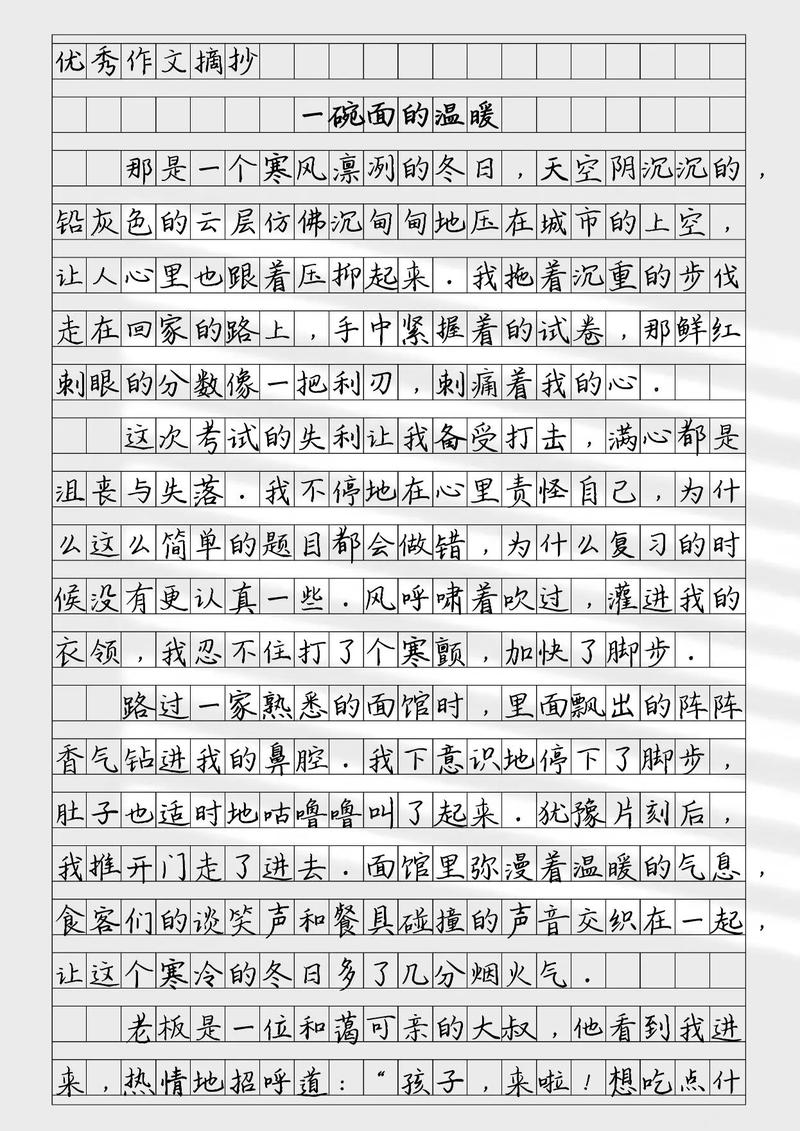 优秀作文摘抄
一碗面的温暖
那是一个寒风凛冽的冬日，天空阴沉沉的，
铅灰色的云层仿佛沉甸甸地压在城市的上空，
让人心里也跟着压抑起来．我拖着沉重的步伐
走在回家的路上，手中紧握着的试卷，那鲜红
刺眼的分数像一把利刃，刺痛着我的心．
这次考试的失利让我备受打击，满心都是
沮丧与失落．我不停地在心里责怪自己，为什
么这么简单的题目都会做错，为什么复习的时
候没有更认真一些．风呼啸着吹过，灌进我的
衣领，我忍不住打了个寒颤，加快了脚步．
路过一家熟悉的面馆时，里面飘出的阵阵
香气钻进我的鼻腔．我下意识地停下了脚步，
肚子也适时地咕噜噜叫了起来．犹豫片刻后，
我推开门走了进去．面馆里弥漫着温暖的气息，
食客们的谈笑声和餐具碰撞的声音交织在一起，
让这个寒冷的冬日多了几分烟火气．
老板是一位和蔼可亲的大叔，他看到我进
来，热情地招呼道：“孩子，来啦！想吃点什